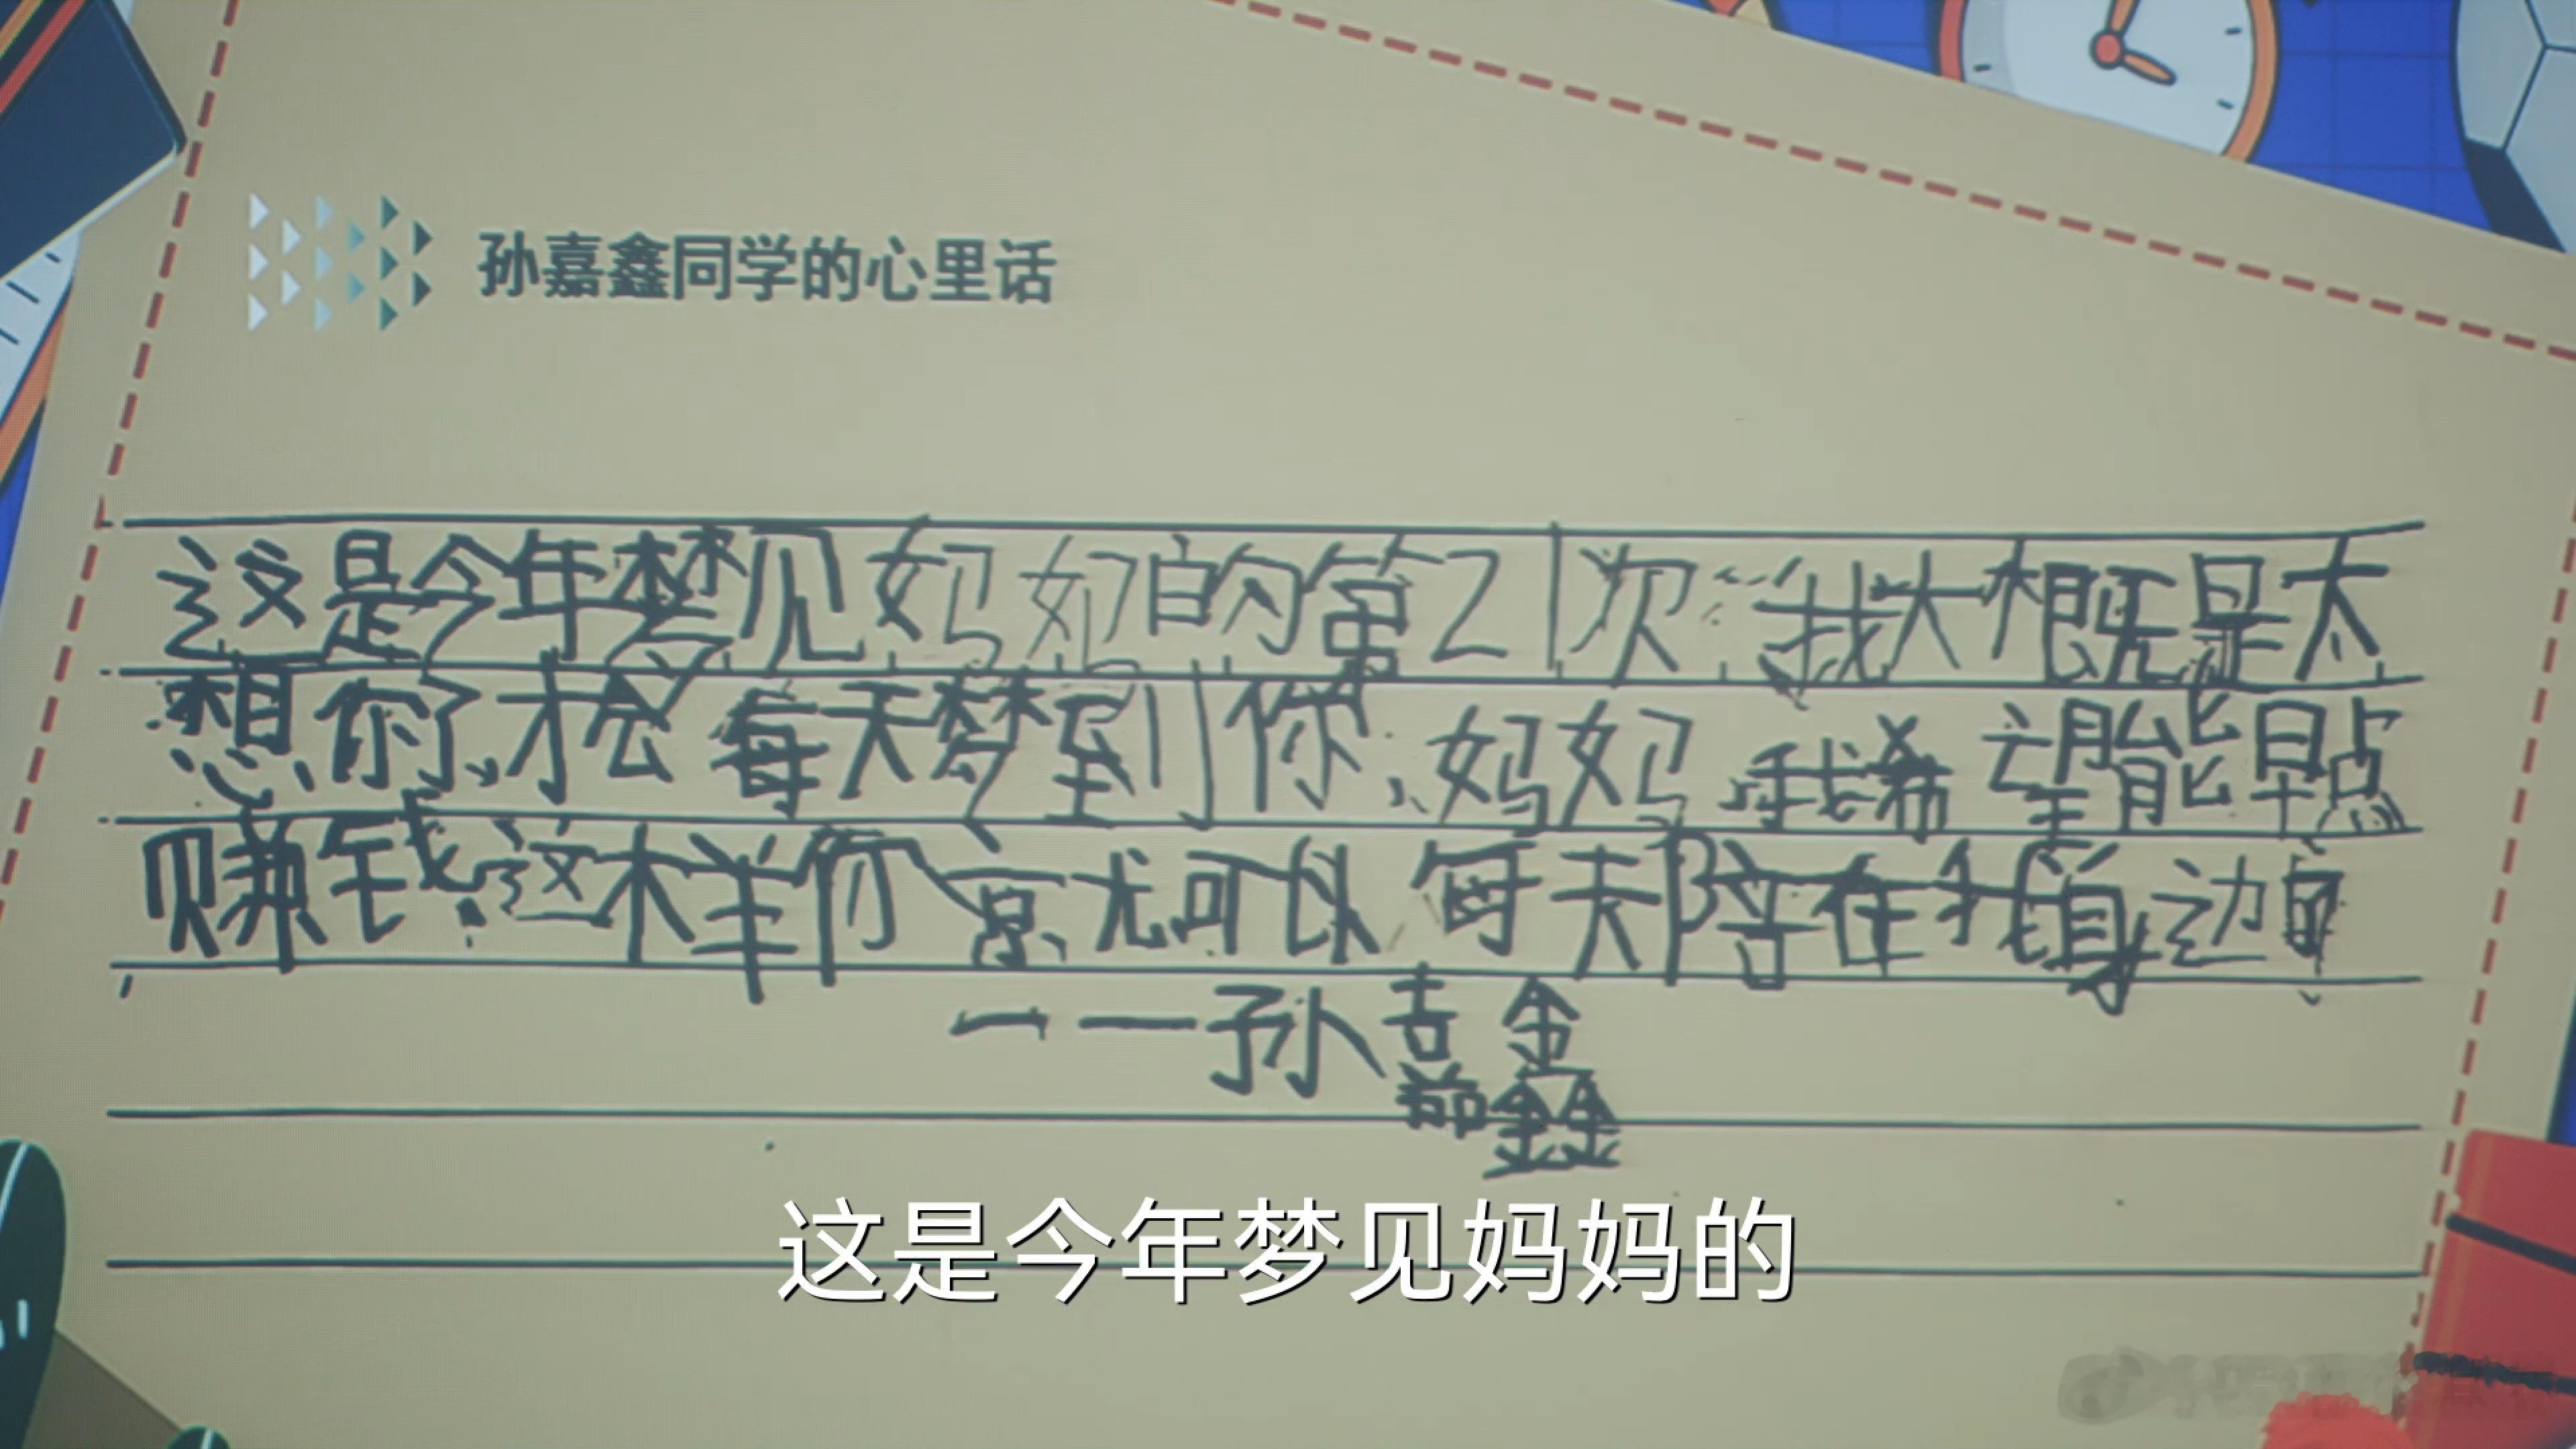 孙嘉鑫同学的心里话
这是今年梦见妈妈的第21次,我大概是太
想你了,才会每天梦到你,妈妈我希望能早点
赚钱,这样你就可以每天陪在我身边
——孙嘉鑫
这是今年梦见妈妈的